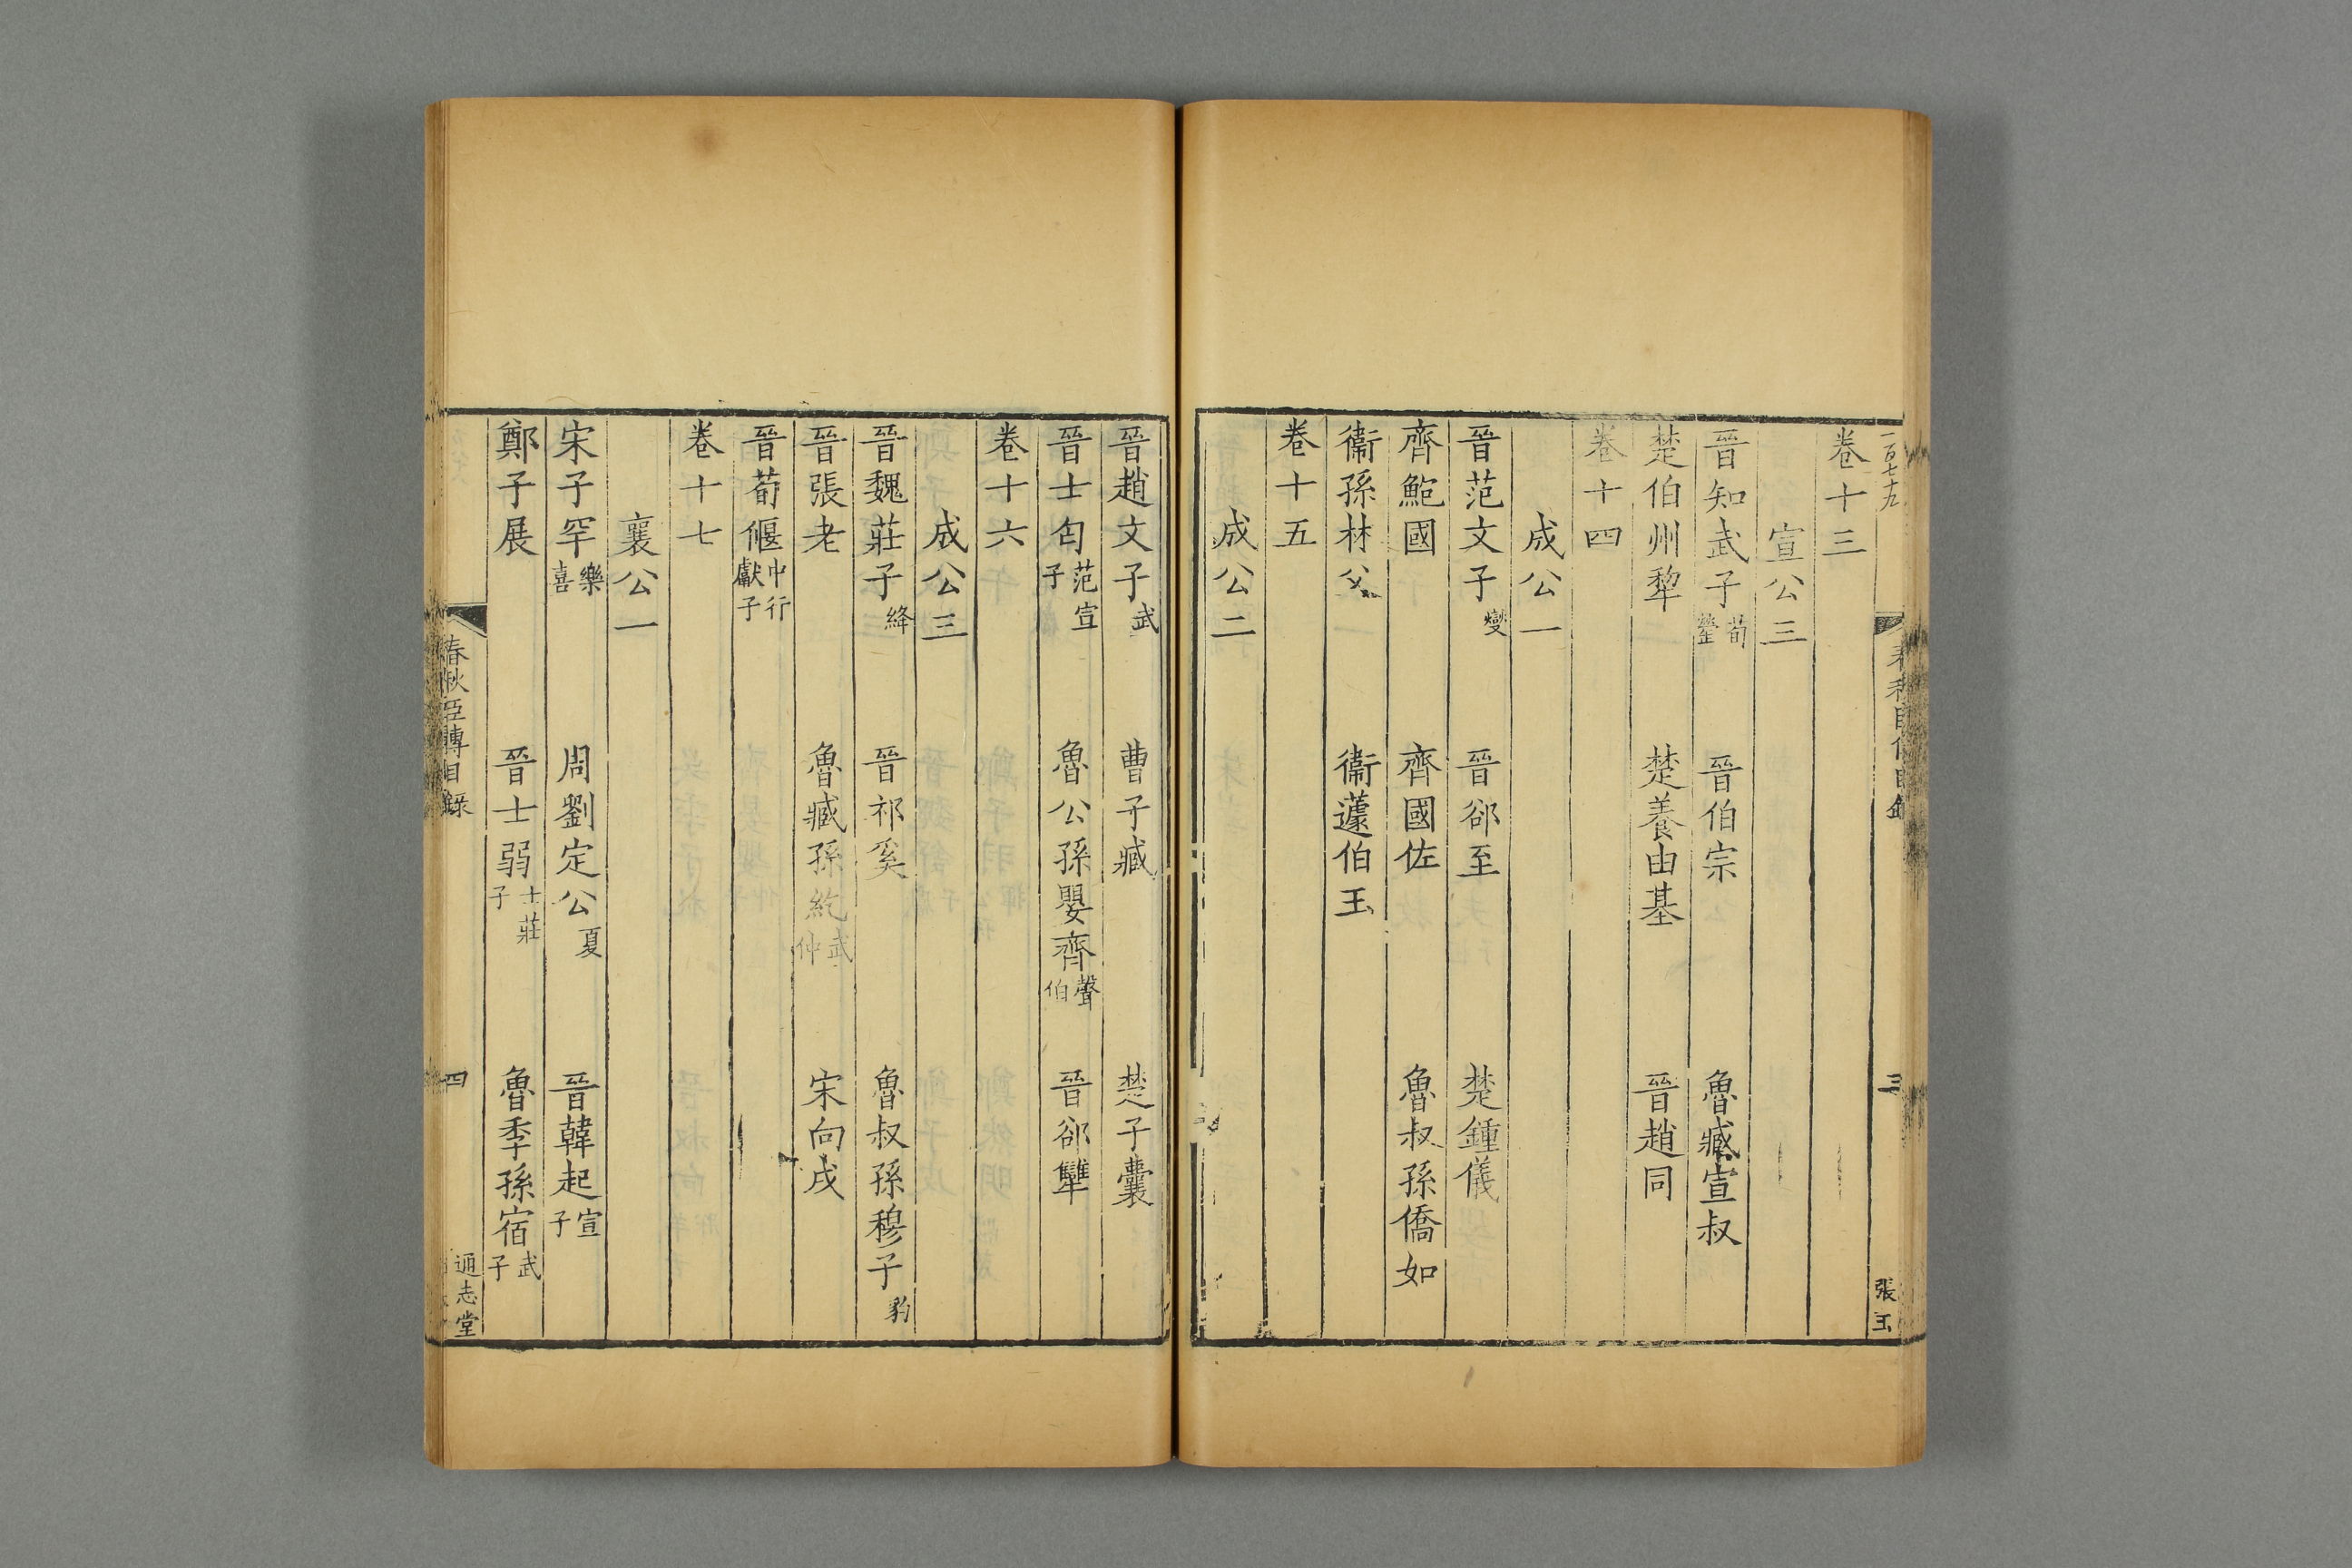 一百七十九
三
張玉
卷十三
宣公三
晉知武子荀罃 晉伯宗 魯臧宣叔
楚伯州犂 楚養由基 晉趙同
卷十四
成公一
晉范文子燮 晉郤至 楚鍾儀
齊鮑國 齊國佐 魯叔孫僑如
衞孫林父 衞蘧伯玉
卷十五
成公二
晉趙文子武 曹子臧 楚子囊
晉士匄范宣子 魯公孫嬰齊聲伯 晉郤犫
卷十六
成公三
晉魏莊子絳 晉祁奚 魯叔孫穆子豹
晉張老 魯臧孫紇武仲 宋向戌
晉荀偃中行獻子
卷十七
襄公一
宋子罕樂喜 周劉定公夏 晉韓起宣子
鄭子展 晉士弱士莊子 魯季孫宿武子
春秋臣傳目錄 四 通志堂